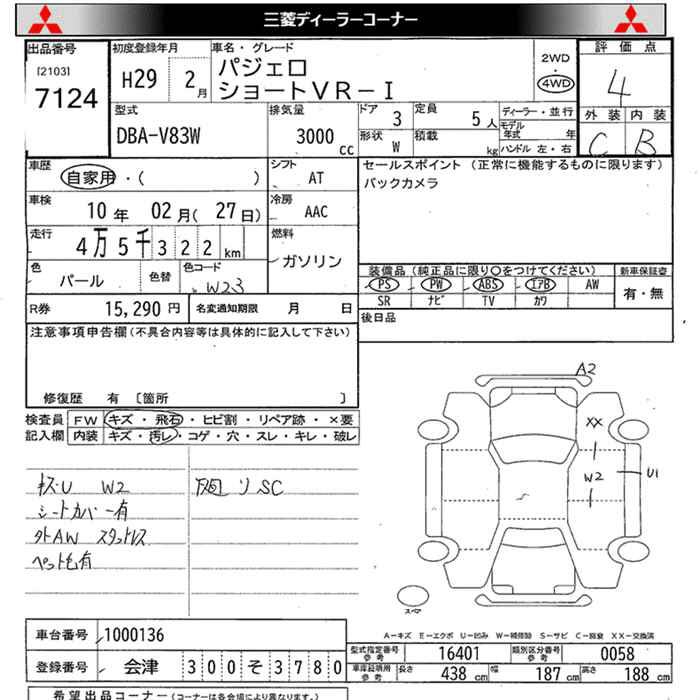 三菱ディーラーコーナー
出品番号 初度登録年月 車名・グレード 2WD・4WD 評価点
[2103]
7124 H29 2月 パジェロ
ショートVR-I 4
型式 排気量 ドア 定員 ディーラー・並行 外装 内装
DBA-V83W 3000cc 3 5人 モデル年式 年 C B
形状 W 積載 kg ハンドル 左・右
車歴 自家用・( ) シフト AT セールスポイント (正常に機能するものに限ります)
バックカメラ
車検 10年 02月(27日) 冷房 AAC
走行 4万5千322km 燃料 ガソリン
色 パール 色替 色コード W23
装備品(純正品に限り○をつけてください) 新車保証書
PS PW ABS エアB AW 有・無
SR ナビ TV カワ
R券 15,290円 名変通知期限 月 日 後日品
注意事項申告欄(不具合内容等は具体的に記入して下さい)
修復歴 有 〔箇所 〕
検査員 FW キズ・飛石・ヒビ割・リペア跡・×要
記入欄 内装 キズ・汚レ・コゲ・穴・スレ・キレ・破レ
キズU W2
シートカバー有
外AW スタットレス
ペット毛有
下廻リ SC
A2
XX
W2
U1
スペア
A-キズ E-エクボ U-凹み W-補修跡 S-サビ C-腐食 XX-交換済
車台番号 1000136
型式指定番号 参考 16401 類別区分番号 参考 0058
登録番号 会津 300 そ 3780
車庫証明用 参考 長さ 438cm 幅 187cm 高さ 188cm
希望出品コーナー (コーナーは各会場により異なります。)